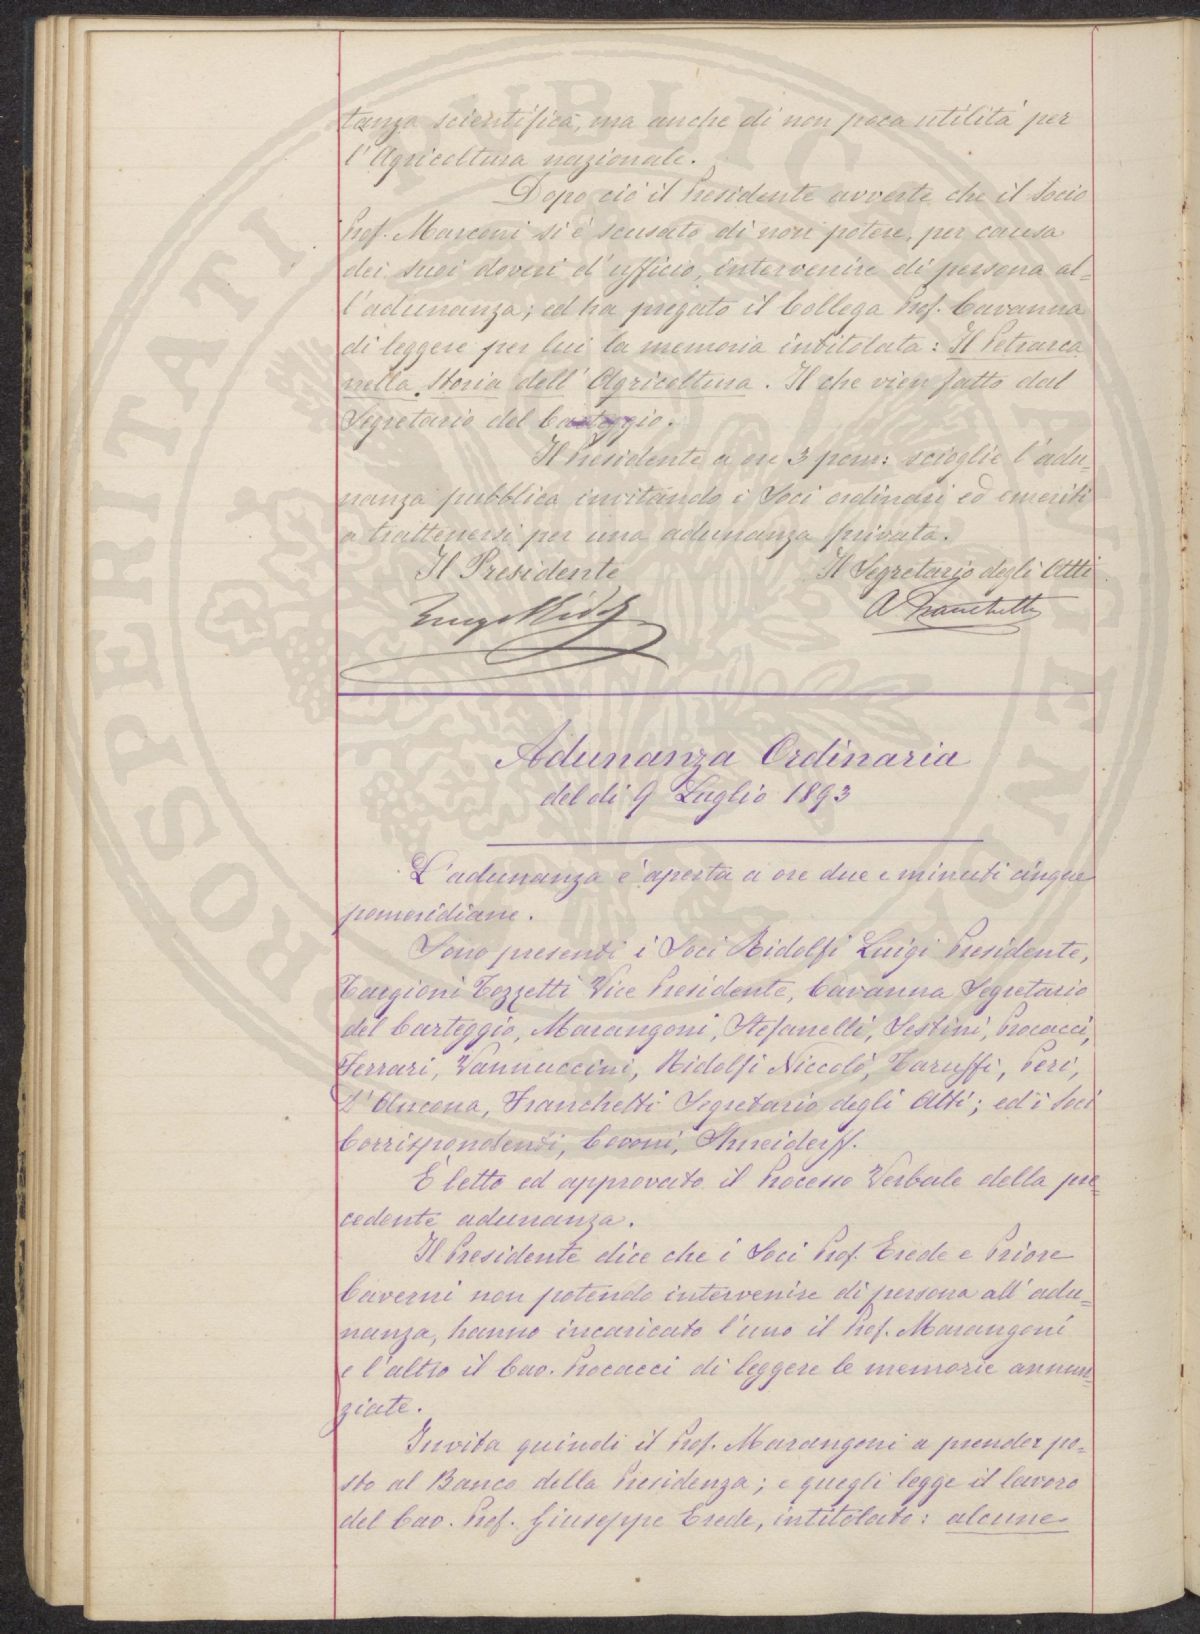 tanza scientifica, ma anche di non poca utilità per
l'Agricoltura nazionale.
Dopo ciò il Presidente avverte che il Socio
Prof. Marconi si è scusato di non potere, per causa
dei suoi doveri d'ufficio, intervenire di persona al=
l'adunanza; ed ha pregato il Collega Prof. Cavanna
di leggere per lui la memoria intitolata: Il Petrarca
nella Storia dell'Agricoltura. Il che vien fatto dal
Segretario del Carteggio.
Il Presidente a ore 3 pom: scioglie l'adu=
nanza pubblica invitando i Soci ordinari ed emeriti
a trattenersi per una adunanza privata.
Il Presidente Il Segretario degli Atti
Luigi Ridolfi A Franchetti
Adunanza Ordinaria
del dì 9 Luglio 1893
L'adunanza è aperta a ore due e minuti cinque
pomeridiane.
Sono presenti i Soci Ridolfi Luigi Presidente,
Targioni Tozzetti Vice Presidente, Cavanna Segretario
del Carteggio, Marangoni, Stefanelli, Sestini, Procacci,
Ferrari, Vannuccini, Ridolfi Niccolò, Taruffi, Peri,
D'Ancona, Franchetti Segretario degli Atti; ed i Soci
Corrispondenti, Covoni, Shneiderff.
È letto ed approvato il Processo Verbale della pre=
cedente adunanza.
Il Presidente dice che i Soci Prof. Erede e Priore
Caverni non potendo intervenire di persona all'adu=
nanza, hanno incaricato l'uno il Prof. Marangoni
e l'altro il Cav. Procacci di leggere le memorie annun=
ziate.
Invita quindi il Prof. Marangoni a prender po=
sto al Banco della Presidenza; e quegli legge il lavoro
del Cav. Prof. Giuseppe Erede, intitolato: alcune
PROSPERITATI PUBLICAE AUGENDAE